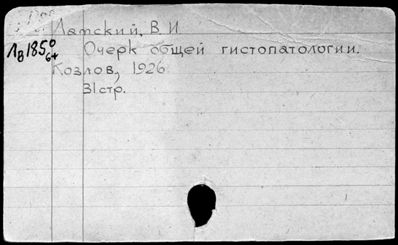 Латский, В.И
Лв185⁰ Очерк общей гистопатологии.
64
Козлов, 1926
31стр.